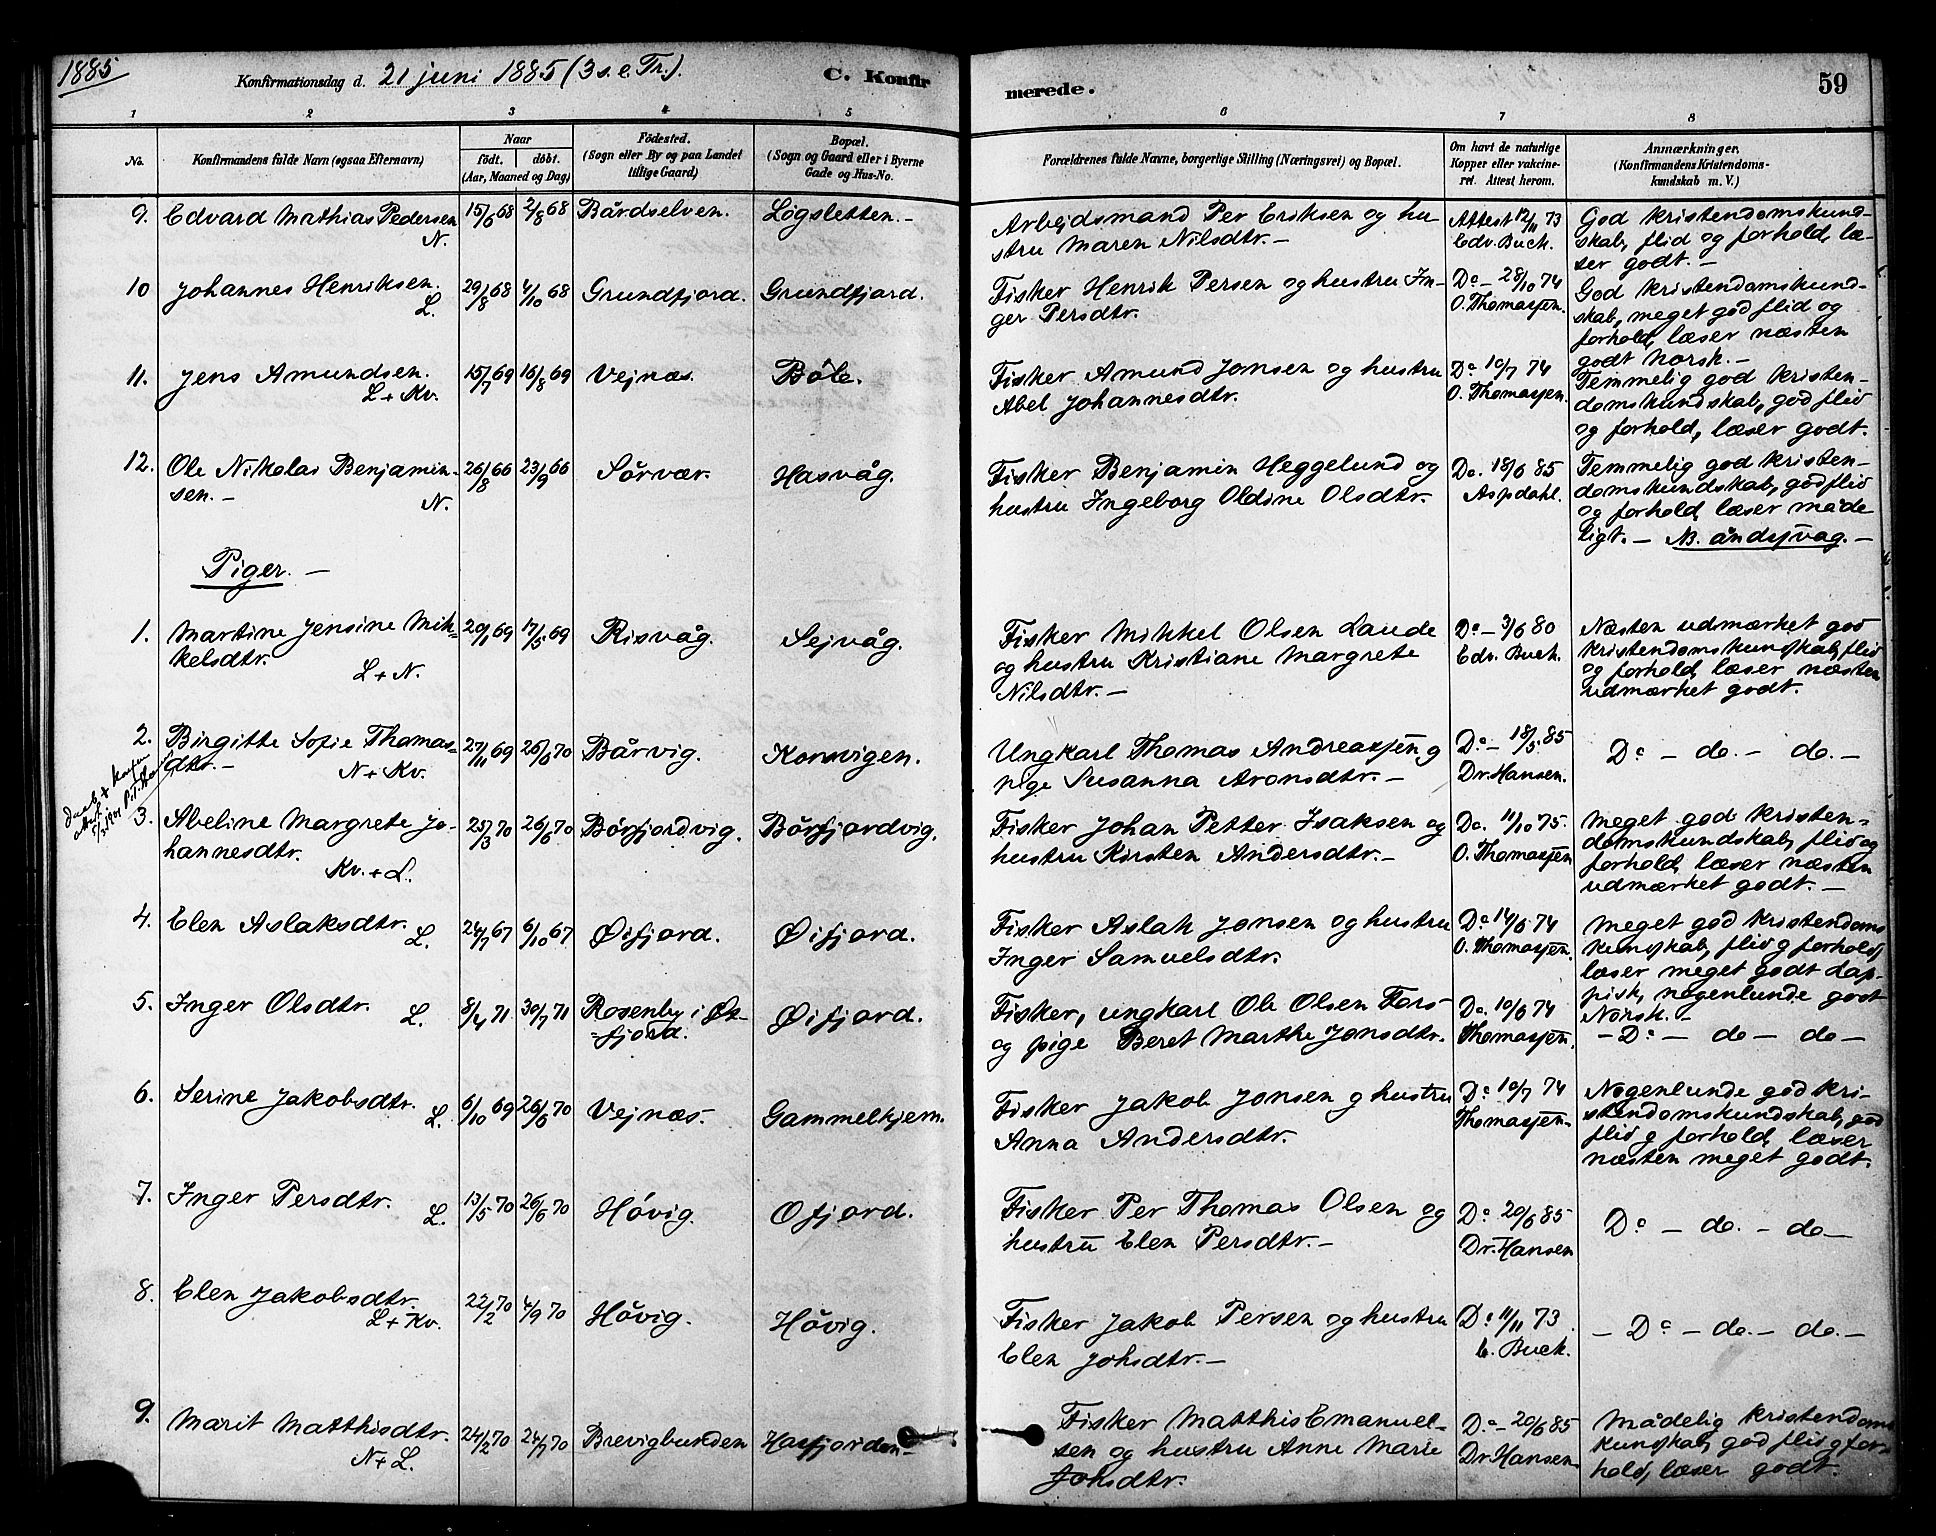 1885
Konfirmationsdag d. 21 juni 1885 (3 s. e. Tr.).
C. Konfirmerede.
59
1 2 3 4 5 6 7 8
No.
Konfirmandens fulde Navn (ogsaa Efternavn)
Naar
födt. döbt.
(Aar, Maaned og Dag)
Födested.
(Sogn eller By og paa Landet
tillige Gaard)
Bopæl.
(Sogn og Gaard eller i Byerne
Gade og Hus-No.
Forældrenes fulde Navne, borgerlige Stilling (Næringsvei) og Bopæl.
Om havt de naturlige
Kopper eller vakcine-
ret. Attest herom.
Anmærkninger,
(Konfirmandens Kristendoms-
kundskab m. V.)
9. Edvard Mathias Pedersen
N.
15/6 68 2/8 68 Bårdselven. Løgsletten.-
Arbejdsmand Per Eriksen og hu-
stru Maren Nilsdtr.-
Attest 12/11 73
Edv. Buck.
God kristendomskund-
skab, flid og forhold, læ-
ser godt.-
10 Johannes Henriksen.
L.
29/8 68 4/10 68 Grundfjord. Grundfjord.
Fisker Henrik Persen og hustru In-
ger Persdtr.
Do- 28/10 74
O. Thomassen.
God kristendomskund-
skab, meget god flid og
forhold, læser næsten
godt norsk.-
11. Jens Amundsen.
L + Kv.
15/7 69 16/8 69 Vejnæs. Böle.
Fisker Amund Jonsen og hustru
Abel Johannesdtr.
Do 10/7 74
O. Thomassen.
Temmelig god kristen-
domskundskab, god flid
og forhold, læser godt.
12. Ole Nikolai Benjamin-
sen.-
N.
26/8 66 23/9 66 Sörvær. Hasvåg.
Fisker Benjamin Heggelund og
hustru Ingeborg Oldine Olsdtr.
Do. 18/6 85
Aspdahl.
Temmelig god kristen-
domskundskab, god flid
og forhold, læser måde
ligt.- N. åndsvag.-
Piger.-
1. Martine Jensine Mik-
kelsdtr.
L + N.
20/1 69 17/5 69 Risvåg. Sejvåg.
Fisker Mikkel Olsen Laude
og hustru Kristiane Margrete
Nilsdtr.-
Do- 3/6 80
Edv. Buck.
Næsten udmærket god
kristendomskunskab, flid
og forhold, læser næsten
udmærket godt.
2. Birgitte Sofie Thomas-
dtr.-
N + Kv.
27/11 69 26/6 70 Bårvig. Korsvigen.
Ungkarl Thomas Andreassen g
pige Susanna Aronsdtr.-
Do- 18/5 85
Dr. Hansen.
Do - do.- do.-
3. Abeline Margrete Jo-
hannesdtr.
Kv. + L.
25/3 70 26/6 70 Börfjordvig. Börfjordvig.
Fisker Johan Petter Isaksen og
hustru Kirsten Andersdtr.-
Do. 11/10 75.
O. Thomassen
Meget god kristen-
domskundskab, flid og
forhold, læser næsten
udmærket godt.-
4. Elen Aslaksdtr.
L.
24/7 67 6/10 67 Øifjord. Øifjord.
Fisker Aslak Jonsen og hustru
Inger Samuelsdtr.
Do 14/6 74
O. Thomassen.
Meget god kristendoms
kunskab, flid g forhold,
læser meget godt Lap-
pisk, nogenlunde godt
Norsk.-
5. Inger Olsdtr.
L.
8/4 71 30/7 71 Rosenby i Øk-
-fjord. Øifjord.
Fisker, ungkarl Ole Olsen Fors-
og pige Beret Marthe Jonsdtr.
Do. 10/6 74
Thomassen.
-Do- do- do-
6. Serine Jakobsdtr.
L.
6/10 69 26/6 70 Vejnæs. Gammelhjem.
Fisker Jakob Jonsen g hustru
Anna Andersdtr.
Do 10/7 74
Thomassen-
Nogenlunde god kri-
stendomskundskab, god
flid g forhold, læser
næsten meget godt.
7. Inger Persdtr.
L.
13/5 70 26/6 70 Hövig. Ofjord.
Fisker Per Thomas Olsen og
hustru Elen Persdtr.-
Do 20/6 85
Dr. Hansen
Do - do.- do-
8. Elen Jakobsdtr.
L + Kv.
22/2 70 4/9 70 Håvig. Håvig.
Fisker Jakob Persen og hustru
Elen Johsdtr.-
Do 11/11 73.
E. Buck.
- Do - do.- do.-
9. Marit Matthisdtr.
N + L.
24/2 70 24/7 70 Brevigbunden Hasfjorden-
Fisker Matthis Emanuel-
sen og hustru Anne Marie
Johsdtr.
Do- 20/6 85
Dr. Hansen-
Mådelig kristendoms
kunskab, god flid g for-
hold, læser godt.